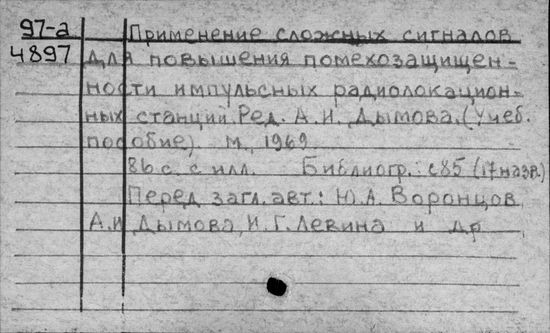 97-а Применение сложных сигналов
4897 для повышения помехозащищен-
ности импульсных радиолокацион-
ных станций. Ред. А.И. Дымова. (Учеб.
пособие). М., 1969
86 с. с илл. Библиогр.: с 85 (17 назв.)
Перед загл. авт.: Ю.А. Воронцов,
А.И Дымова, И.Г. Левина и др